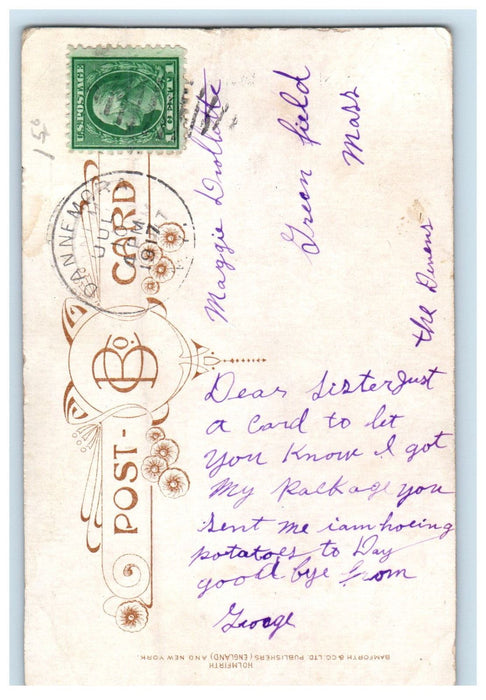 U.S. POSTAGE
1 CENT 1
15¢
DANNEMORA
JUL
10
4 PM
1917
POST-CARD
B Co.
Maggie Drollette
Green field
Mass
the Devens
Dear Sister Just
a Card to let
you Know I got
My Package you
sent me i am hoeing
potatoes to Day
good bye From
Grooge
HOLMFIRTH
BAMFORTH & CO. LTD. PUBLISHERS (ENGLAND) AND NEW YORK